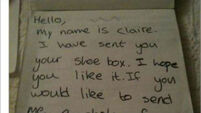 Hello,
my name is Claire.
I have sent you
your shoe box. I hope
you like it. If you
would like to send
me